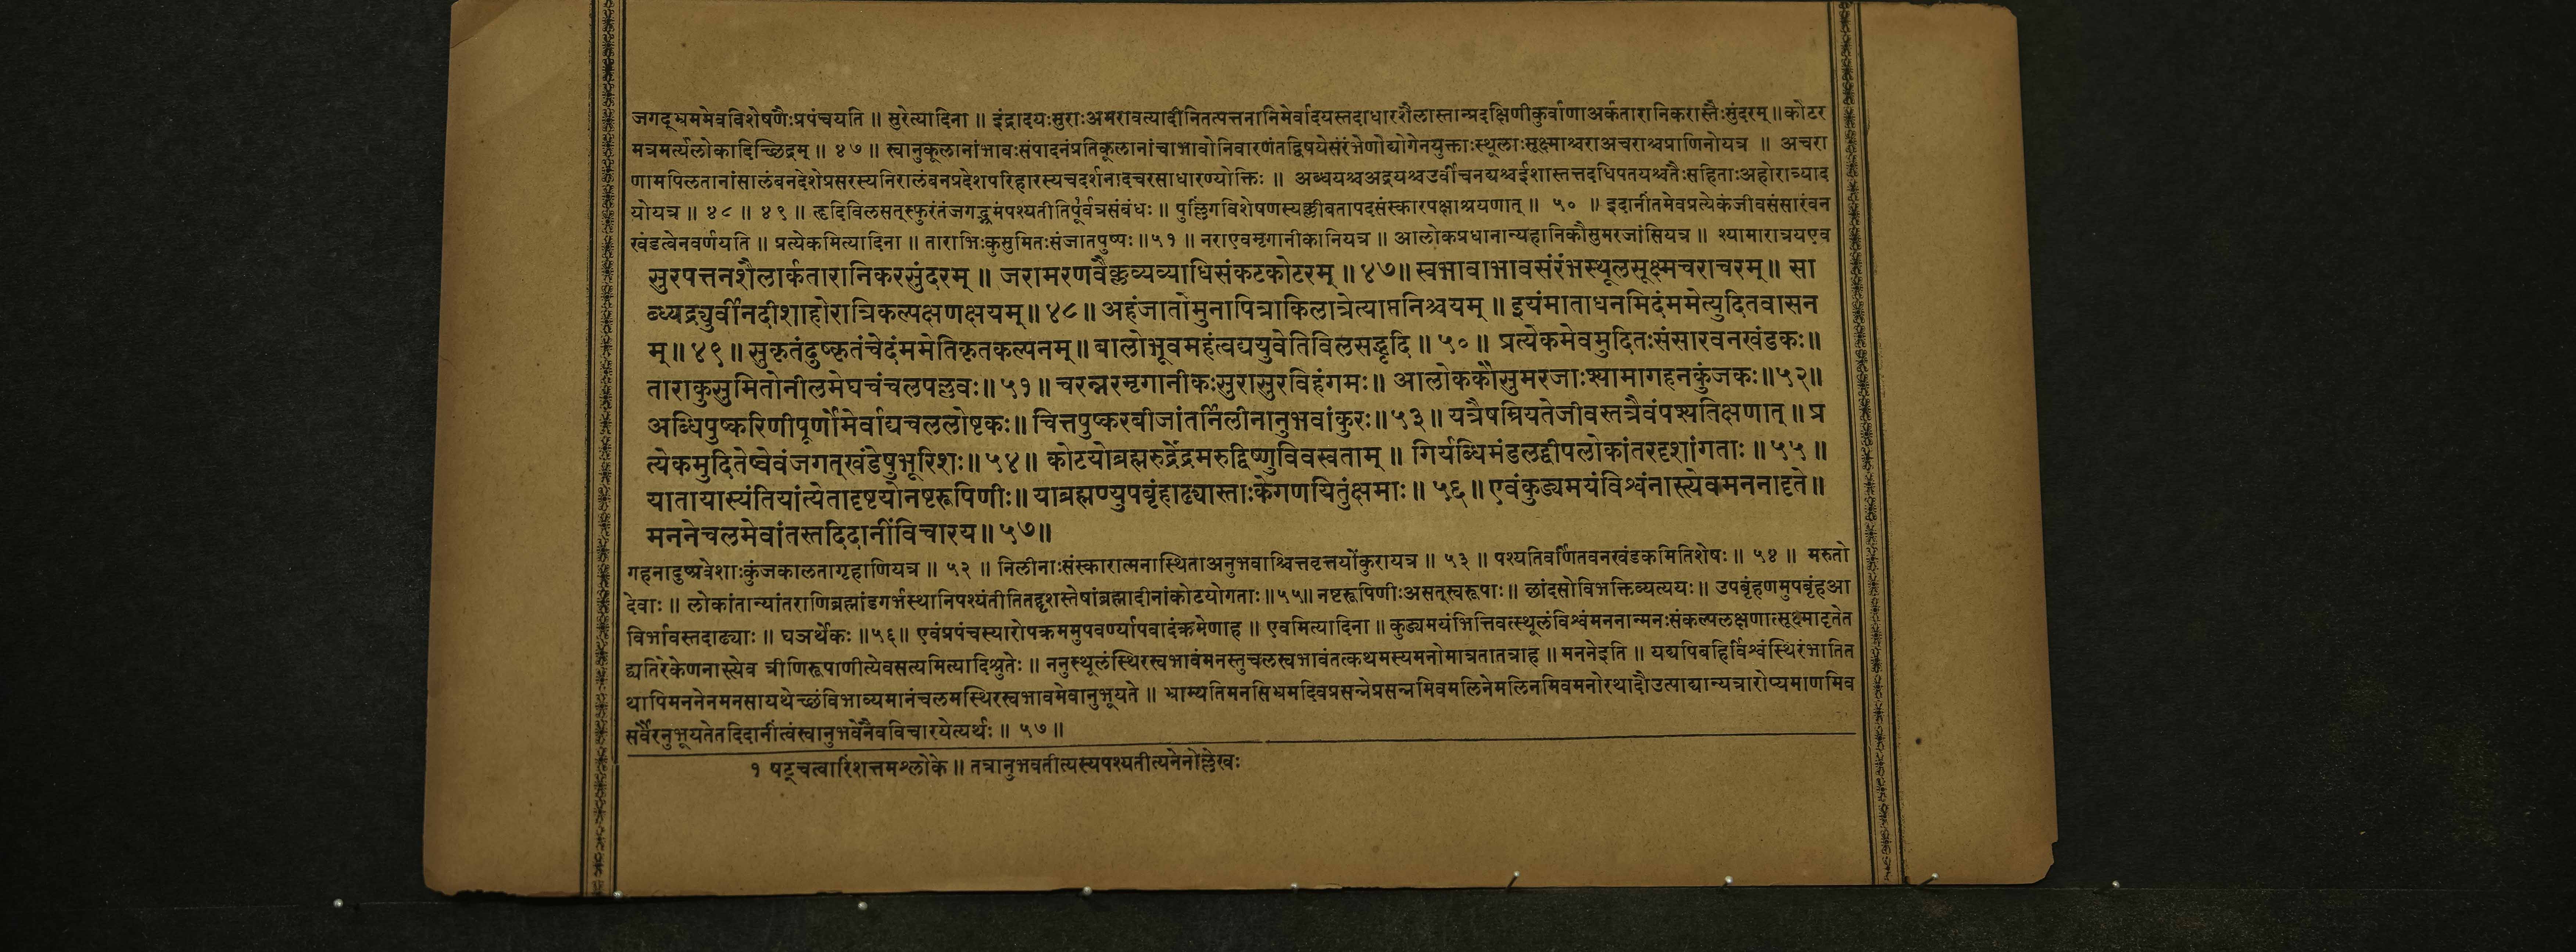 जगद्भ्रममेवविशेषणैःप्रपंचयति ॥ सुरेत्यादिना ॥ इंद्रादयःसुराःअमरावत्यादीनितत्पत्तनानिमेर्वादयस्तदाधारशैलास्तान्प्रदक्षिणीकुर्वाणाअर्कतारानिकरास्तैःसुंदरम् ॥ कोटर
मत्रमर्त्यलोकादिच्छिद्रम् ॥ ४७ ॥ स्वानुकूलानांभावःसंपादनंप्रतिकूलानांचाभावोनिवारणंतद्विषयेसंरंभेणोद्योगेनयुक्ताःस्थूलाःसूक्ष्माश्चराअचराश्चप्राणिनोयत्र ॥ अचरा
णामपिलतानांसालंबनदेशेप्रसरस्यनिरालंबनप्रदेशपरिहारस्यचदर्शनादचरसाधारण्योक्तिः ॥ अब्धयश्चअद्रयश्चउर्वीचनद्यश्चईशास्तत्तदधिपतयश्चतैःसहिताःअहोरात्र्याद
योयत्र ॥ ४८ ॥ ४९ ॥ हृदिविलसत्स्फुरंतंजगद्भ्रमंपश्यतीतिर्पूर्वत्रसंबंधः ॥ पुल्लिंगविशेषणस्यक्लीबतापदसंस्कारपक्षाश्रयणात् ॥ ५० ॥ इदानींतमेवप्रत्येकंजीवसंसारंवन
खंडत्वेनवर्णयति ॥ प्रत्येकमित्यादिना ॥ ताराभिःकुसुमितःसंजातपुष्पः ॥५१॥ नराएवमृगानीकानियत्र ॥ आलोकप्रधानान्यहानिकौसुमरजांसियत्र ॥ श्यामारात्रयएव
सुरपत्तनशैलार्कतारानिकरसुंदरम् ॥ जरामरणवैक्लव्यव्याधिसंकटकोटरम् ॥ ४७॥ स्वभावाभावसंरंभस्थूलसूक्ष्मचराचरम् ॥ सा
ब्ध्यद्र्युर्वीनदीशाहोरात्रिकल्पक्षणक्षयम् ॥ ४८ ॥ अहंजातोमुनापित्राकिलात्रेत्याप्तनिश्चयम् ॥ इयंमाताधनमिदंममेत्युदितवासन
म् ॥ ४९ ॥ सुकृतंदुष्कृतंचेदंममेतिकृतकल्पनम् ॥ बालोभूवमहंत्वद्ययुवेतिविलसद्धृदि ॥ ५० ॥ प्रत्येकमेवमुदितःसंसारवनखंडकः ॥
ताराकुसुमितोनीलमेघचंचलपल्लवः ॥ ५१ ॥ चरन्नरमृगानीकःसुरासुरविहंगमः ॥ आलोककौसुमरजाःश्यामागहनकुंजकः ॥५२॥
अब्धिपुष्करिणीपूर्णोमेर्वाद्यचललोष्टकः ॥ चित्तपुष्करबीजांतर्निलीनानुभवांकुरः ॥ ५३ ॥ यत्रैषम्रियतेजीवस्तत्रैवंपश्यतिक्षणात् ॥ प्र
त्येकमुदितेष्वेवंजगत्खंडेषुभूरिशः ॥ ५४ ॥ कोटयोब्रह्मरुद्रेंद्रमरुद्विष्णुविवस्वताम् ॥ गिर्यब्धिमंडलद्वीपलोकांतरदृशांगताः ॥ ५५ ॥
यातायास्यंतियांत्येतादृष्टयोनष्टरूपिणीः ॥ याब्रह्मण्युपबृंहाढ्यास्ताःकेगणयितुंक्षमाः ॥ ५६ ॥ एवंकुड्यमयंविश्वंनास्त्येवमननादृते ॥
मननेचलमेवांतस्तदिदानींविचारय ॥ ५७ ॥
गहनादुष्प्रवेशाःकुंजकालतागृहाणियत्र ॥ ५२ ॥ निलीनाःसंस्कारात्मनास्थिताअनुभवाश्चित्तवृत्तयोंकुरायत्र ॥ ५३ ॥ पश्यतिवर्णितवनखंडकमितिशेषः ॥ ५४ ॥ मरुतो
देवाः ॥ लोकांतान्यांतराणिब्रह्मांडगर्भस्थानिपश्यंतीतितद्दृशस्तेषांब्रह्मादीनांकोटयोगताः ॥५५॥ नष्टरूपिणीःअसत्स्वरूपाः ॥ छांदसोविभक्तिव्यत्ययः ॥ उपबृंहणमुपबृंहआ
विर्भावस्तदाढ्याः ॥ घञर्थेकः ॥५६॥ एवंप्रपंचस्यारोपक्रममुपवर्ण्यापवादंक्रमेणाह ॥ एवमित्यादिना ॥ कुड्यमयंभित्तिवत्स्थूलंविश्वंमननान्मनःसंकल्पलक्षणात्सूक्ष्मादृतेत
द्व्यतिरेकेणनास्त्येव त्रीणिरूपाणीत्येवसत्यमित्यादिश्रुतेः ॥ ननुस्थूलंस्थिरस्वभावंमनस्तुचलस्वभावंतत्कथमस्यमनोमात्रतातत्राह ॥ मननेइति ॥ यद्यपिबहिर्विश्वंस्थिरंभातित
थापिमननेनमनसायथेच्छंविभाव्यमानंचलमस्थिरस्वभावमेवानुभूयते ॥ भ्राम्यतिमनसिभ्रमदिवप्रसन्नेप्रसन्नमिवमलिनेमलिनमिवमनोरथादौउत्पाद्यान्यत्रारोप्यमाणमिव
सर्वैरनुभूयतेतदिदानींत्वंस्वानुभवेनैवविचारयेत्यर्थः ॥ ५७ ॥
१ षट्चत्वारिंशत्तमश्लोके ॥ तत्रानुभवतीत्यस्यपश्यतीत्यनेनोल्लेखः